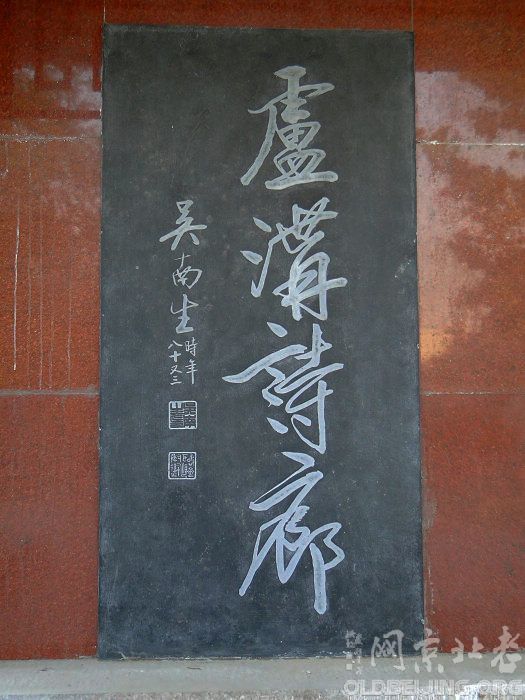 盧溝詩廊
吴南生
時年
八十又三
老北京网
OLDBEIJING.ORG